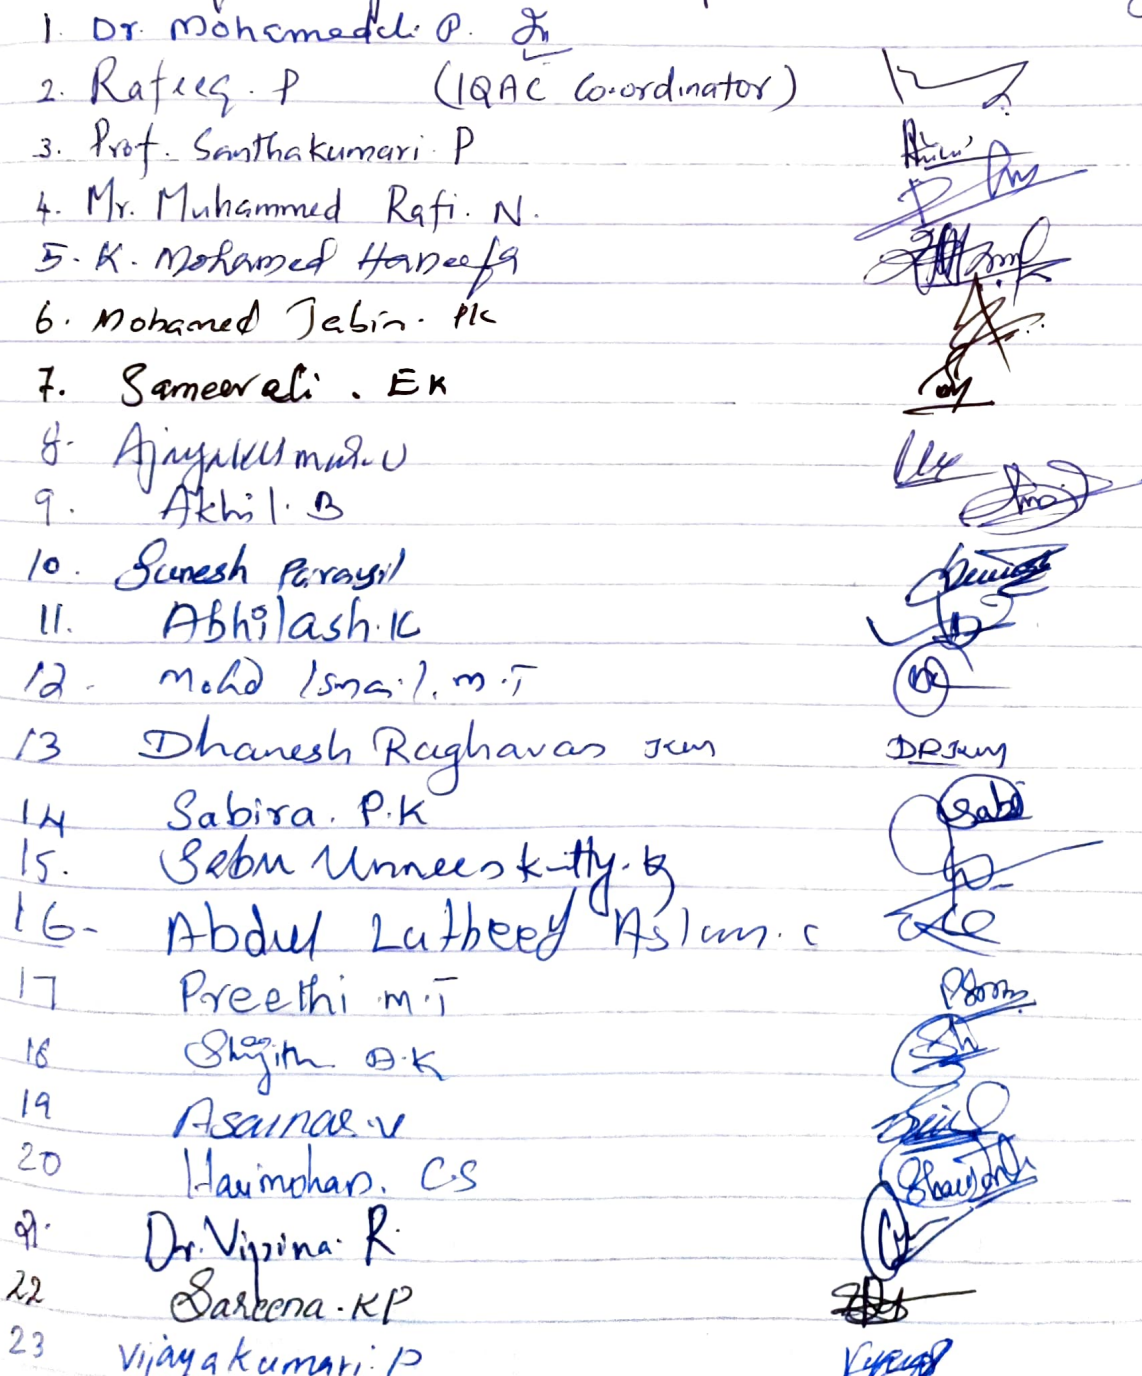 1. Dr. Mohamedali P.
2. Rafeeq. P (IQAC Co-ordinator)
3. Prof. Santhakumari P
4. Mr. Muhammed Rafi. N.
5. K. Mohamed Haneefa
6. Mohamed Jabir. PK
7. Sameerali. EK
8. Ajayakumar. U
9. Akhil. B
10. Sunesh Parayil
11. Abhilash. K
12. Mohd Ismail. M.T
13 Dhanesh Raghavan
14 Sabira. P.K
15. Sebu
16- Abdul Latheef Aslam. C
17 Preethi M.T
18 Shijith
19 Asainar. V
20 Harimohan. C.S
21. Dr. R.
22 Sareena. KP
23 Vijayakumari. P